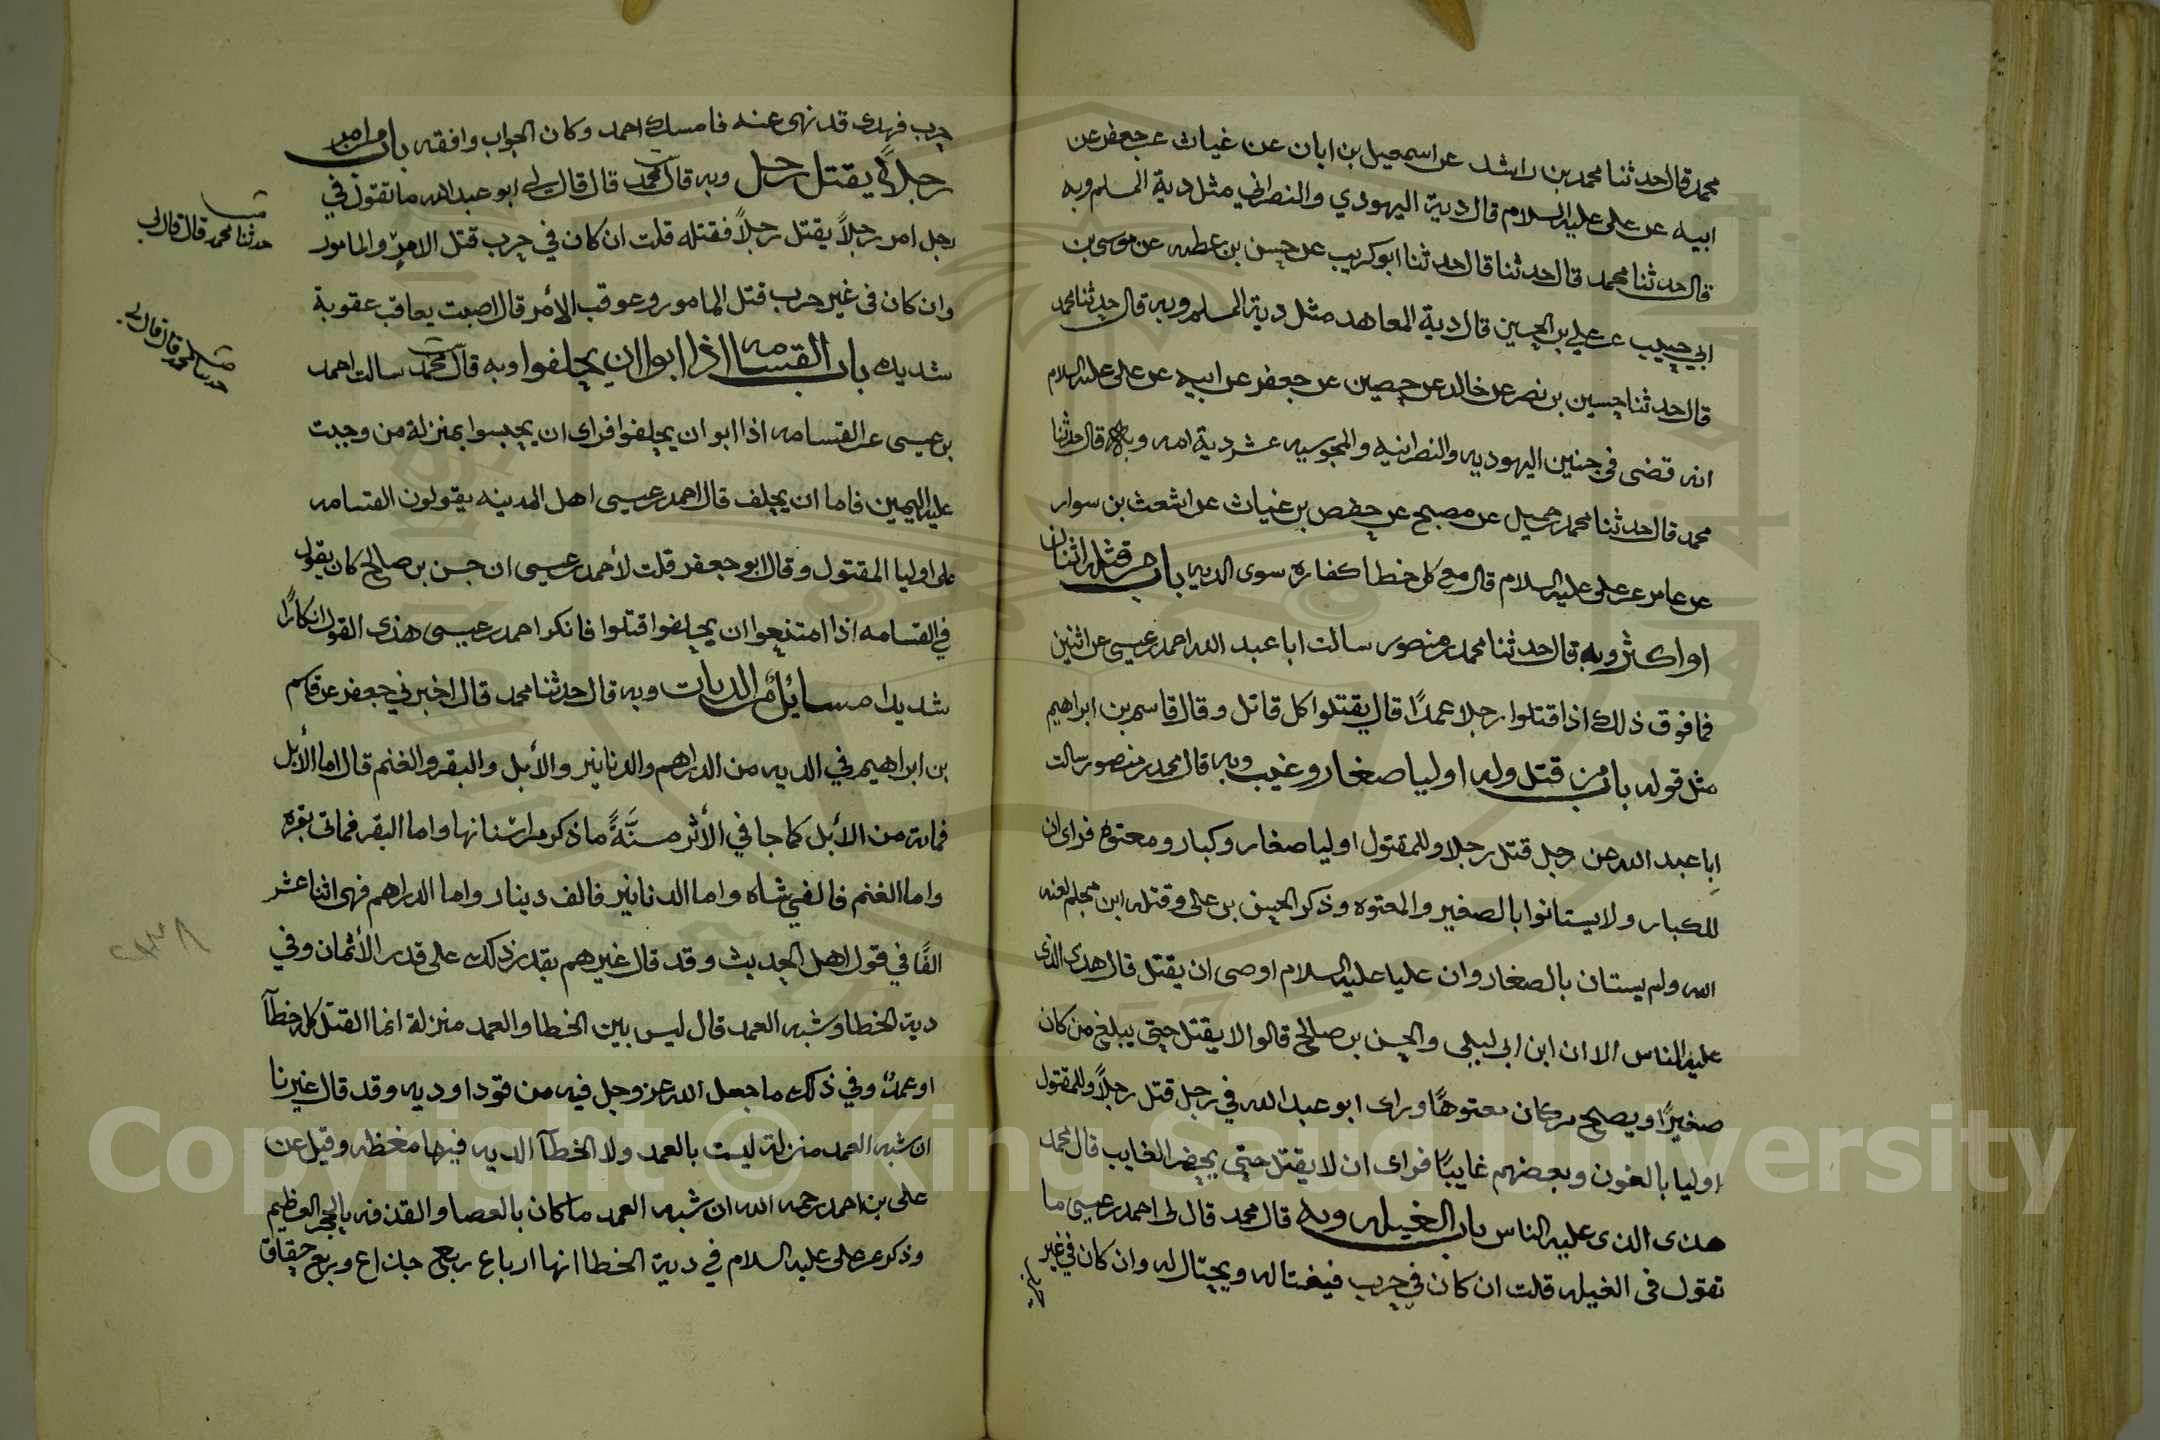 محمد قال حدثنا محمد بن راشد عن اسمعيل بن ابان عن غياث عن جعفر عن
ابيه عن على عليه السلام قال دية اليهودي والنصراني مثل دية المسلم وبه
قال حدثنا محمد قال حدثنا قال حدثنا ابو كريب عن حسن بن عطيه عن موسى بن
ابي حبيب عن علي بن الحسين قال دية المعاهد مثل دية المسلم وبه قال حدثنا محمد
قال حدثنا حسين بن نصر عن خالد عن حصين عن جعفر عن ابيه عن على عليه السلام
انه قضى في جنين اليهوديه والنصرانيه والمجوسيه عشر دية امه وبه قال حدثنا
محمد قال حدثنا محمد بن جميل عن مصبح عن حفص بن غياث عن اشعث بن سوار
عن عامر عن على عليه السلام قال مع كل خطا كفاره سوى الديه باب من قتله اثنان
او اكثر وبه قال حدثنا محمد بن منصور سالت ابا عبد الله احمد بن عيسى عن اثنين
فما فوق ذلك اذا قتلوا رجلا عمدًا قال يقتلوا كل قاتل وقال قاسم بن ابراهيم
مثل قوله باب من قتل وله اوليا صغار وغيب وبه قال محمد بن منصور سالت
ابا عبد الله عن رجل قتل رجلا وللمقتول اوليا صغار وكبار ومعتوه فراى ان
للكبار ولا يستانوا بالصغير والمعتوه وذكر الحسن بن على وقتله ابن ملجم لعنه
الله ولم يستان بالصغار وان عليا عليه السلام اوصى ان يقتل قال هذى الذى
عليه الناس الا ان ابن ابي ليلى والحسن بن صالح قالوا لا يقتل حتى يبلغ من كان
صغيرًا ويصلح من كان معتوهًا وراى ابو عبد الله في رجل قتل رجلاً وللمقتول
اوليا بالغون وبعضهم غايبًا فراى ان لا يقتل حتى يحضر الغايب قال محمد
هذى الذى عليه الناس باب الغيله وبه قال محمد قال لى احمد بن عيسى ما
تقول في الغيله قلت ان كان في حرب فيغتاله ويحتال له وان كان في غير
حرب فهذى قد نهى عنه فامسك احمد وكان الجواب وافقه باب من امر
رجلاً يقتل رجل وبه قال محمد قال قال لي ابو عبد الله ما تقول في
رجل امر رجلاً يقتل رجلاً فقتله قلت ان كان في حرب قتل الامر والمامور
وان كان في غير حرب قتل المامور وعوقب الأمر قال اصبت يعاقب عقوبة
شديده باب القسامه اذا ابوا ان يحلفوا وبه قال محمد سالت احمد
بن عيسى عن القسامه اذا ابو ان يحلفوا فراى ان يحبسوا بمنزلة من وجبت
عليه اليمين فاما ان يحلف قال احمد بن عيسى اهل المدينه يقولون القسامه
على اوليا المقتول وقال ابو جعفر قلت لأحمد بن عيسى ان حسن بن صالح كان يقول
في القسامه اذا امتنعوا ان يحلفوا قتلوا فانكر احمد بن عيسى هذى القول انكارًا
شديدا مسائل من الديات وبه قال حدثنا محمد قال اخبرني جعفر عن قاسم
بن ابراهيم في الديه من الدراهم والدنانير والأبل والبقر والغنم قال اما الأبل
فماىة من الأبل كما جا في الأثر مسنَّةً ما ذكر من اسنانها واما البقر فماتى بقره
واما الغنم فالفي شاه واما الدنانير فالف دينار واما الدراهم فهى اثنا عشر
الفًا في قول اهل الحديث وقد قال غيرهم بقدر ذلك على قدر الأثمان وفي
دية الخطا وشبه العمد قال ليس بين الخطا والعمد منزلة انما القتل كله خطآ
او عمدٌ وفي ذلك ما جعل الله عز وجل فيه من قود او ديه وقد قال غيرنا
ان شبه العمد منزلة ليست بالعمد ولا الخطآ الديه فيها مغلظه وقيل عن
على بن احمد رحمه الله ان شبه العمد ما كان بالعصا والقذفه بالحجر العظيم
وذكر عن على عليه السلام في دية الخطا انها ارباع ربع جذاع وربع حقاق
حدثنا محمد قال قال لي
حدثنا محمد قال قال لي
Copyright © King Saud University